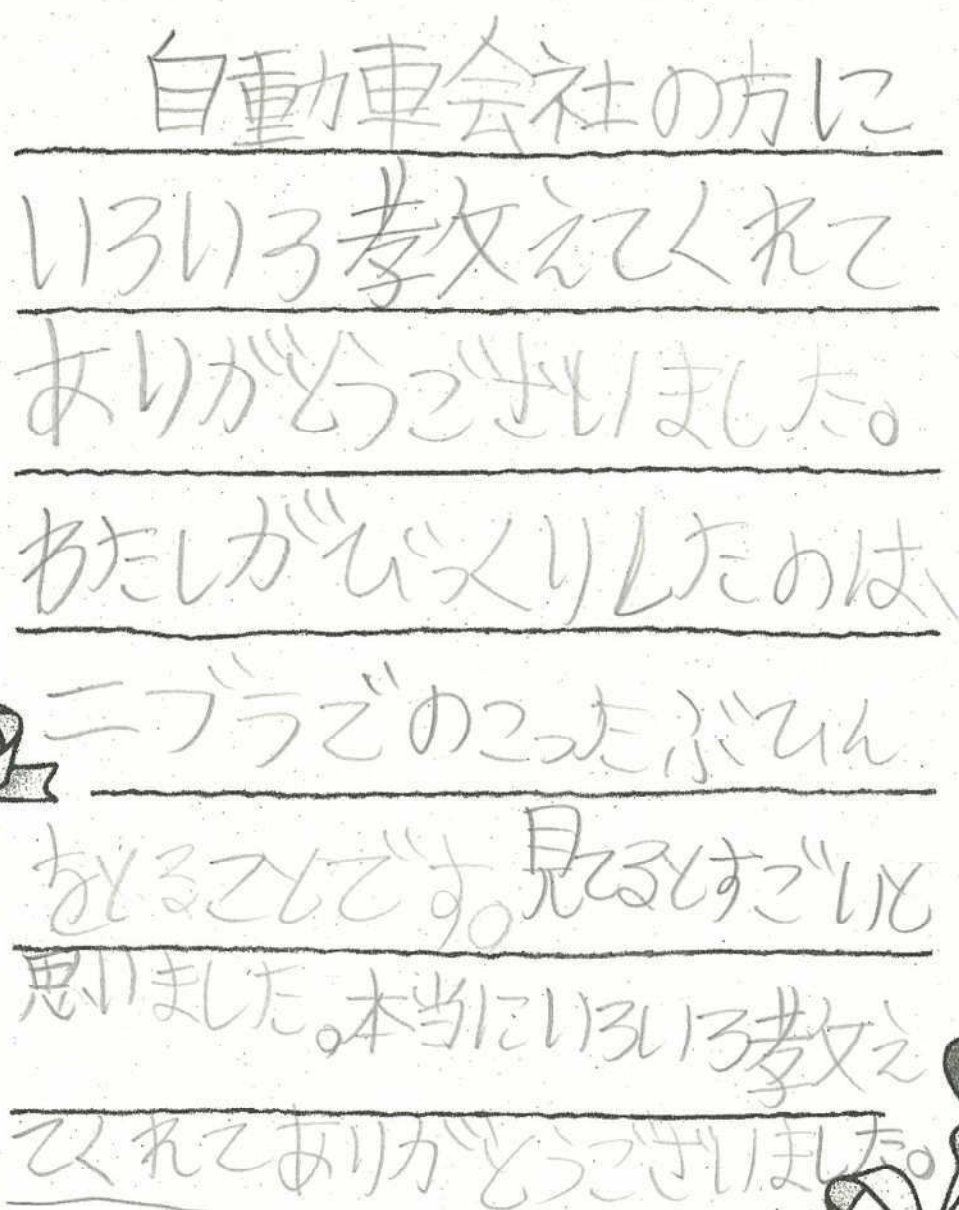 自動車会社の方に
いろいろ教えてくれて
ありがとうございました。
わたしがびっくりしたのは、
ニブラでのこったぶひん
をとることです。見てるとすごいと
思いました。本当にいろいろ教え
てくれてありがとうございました。